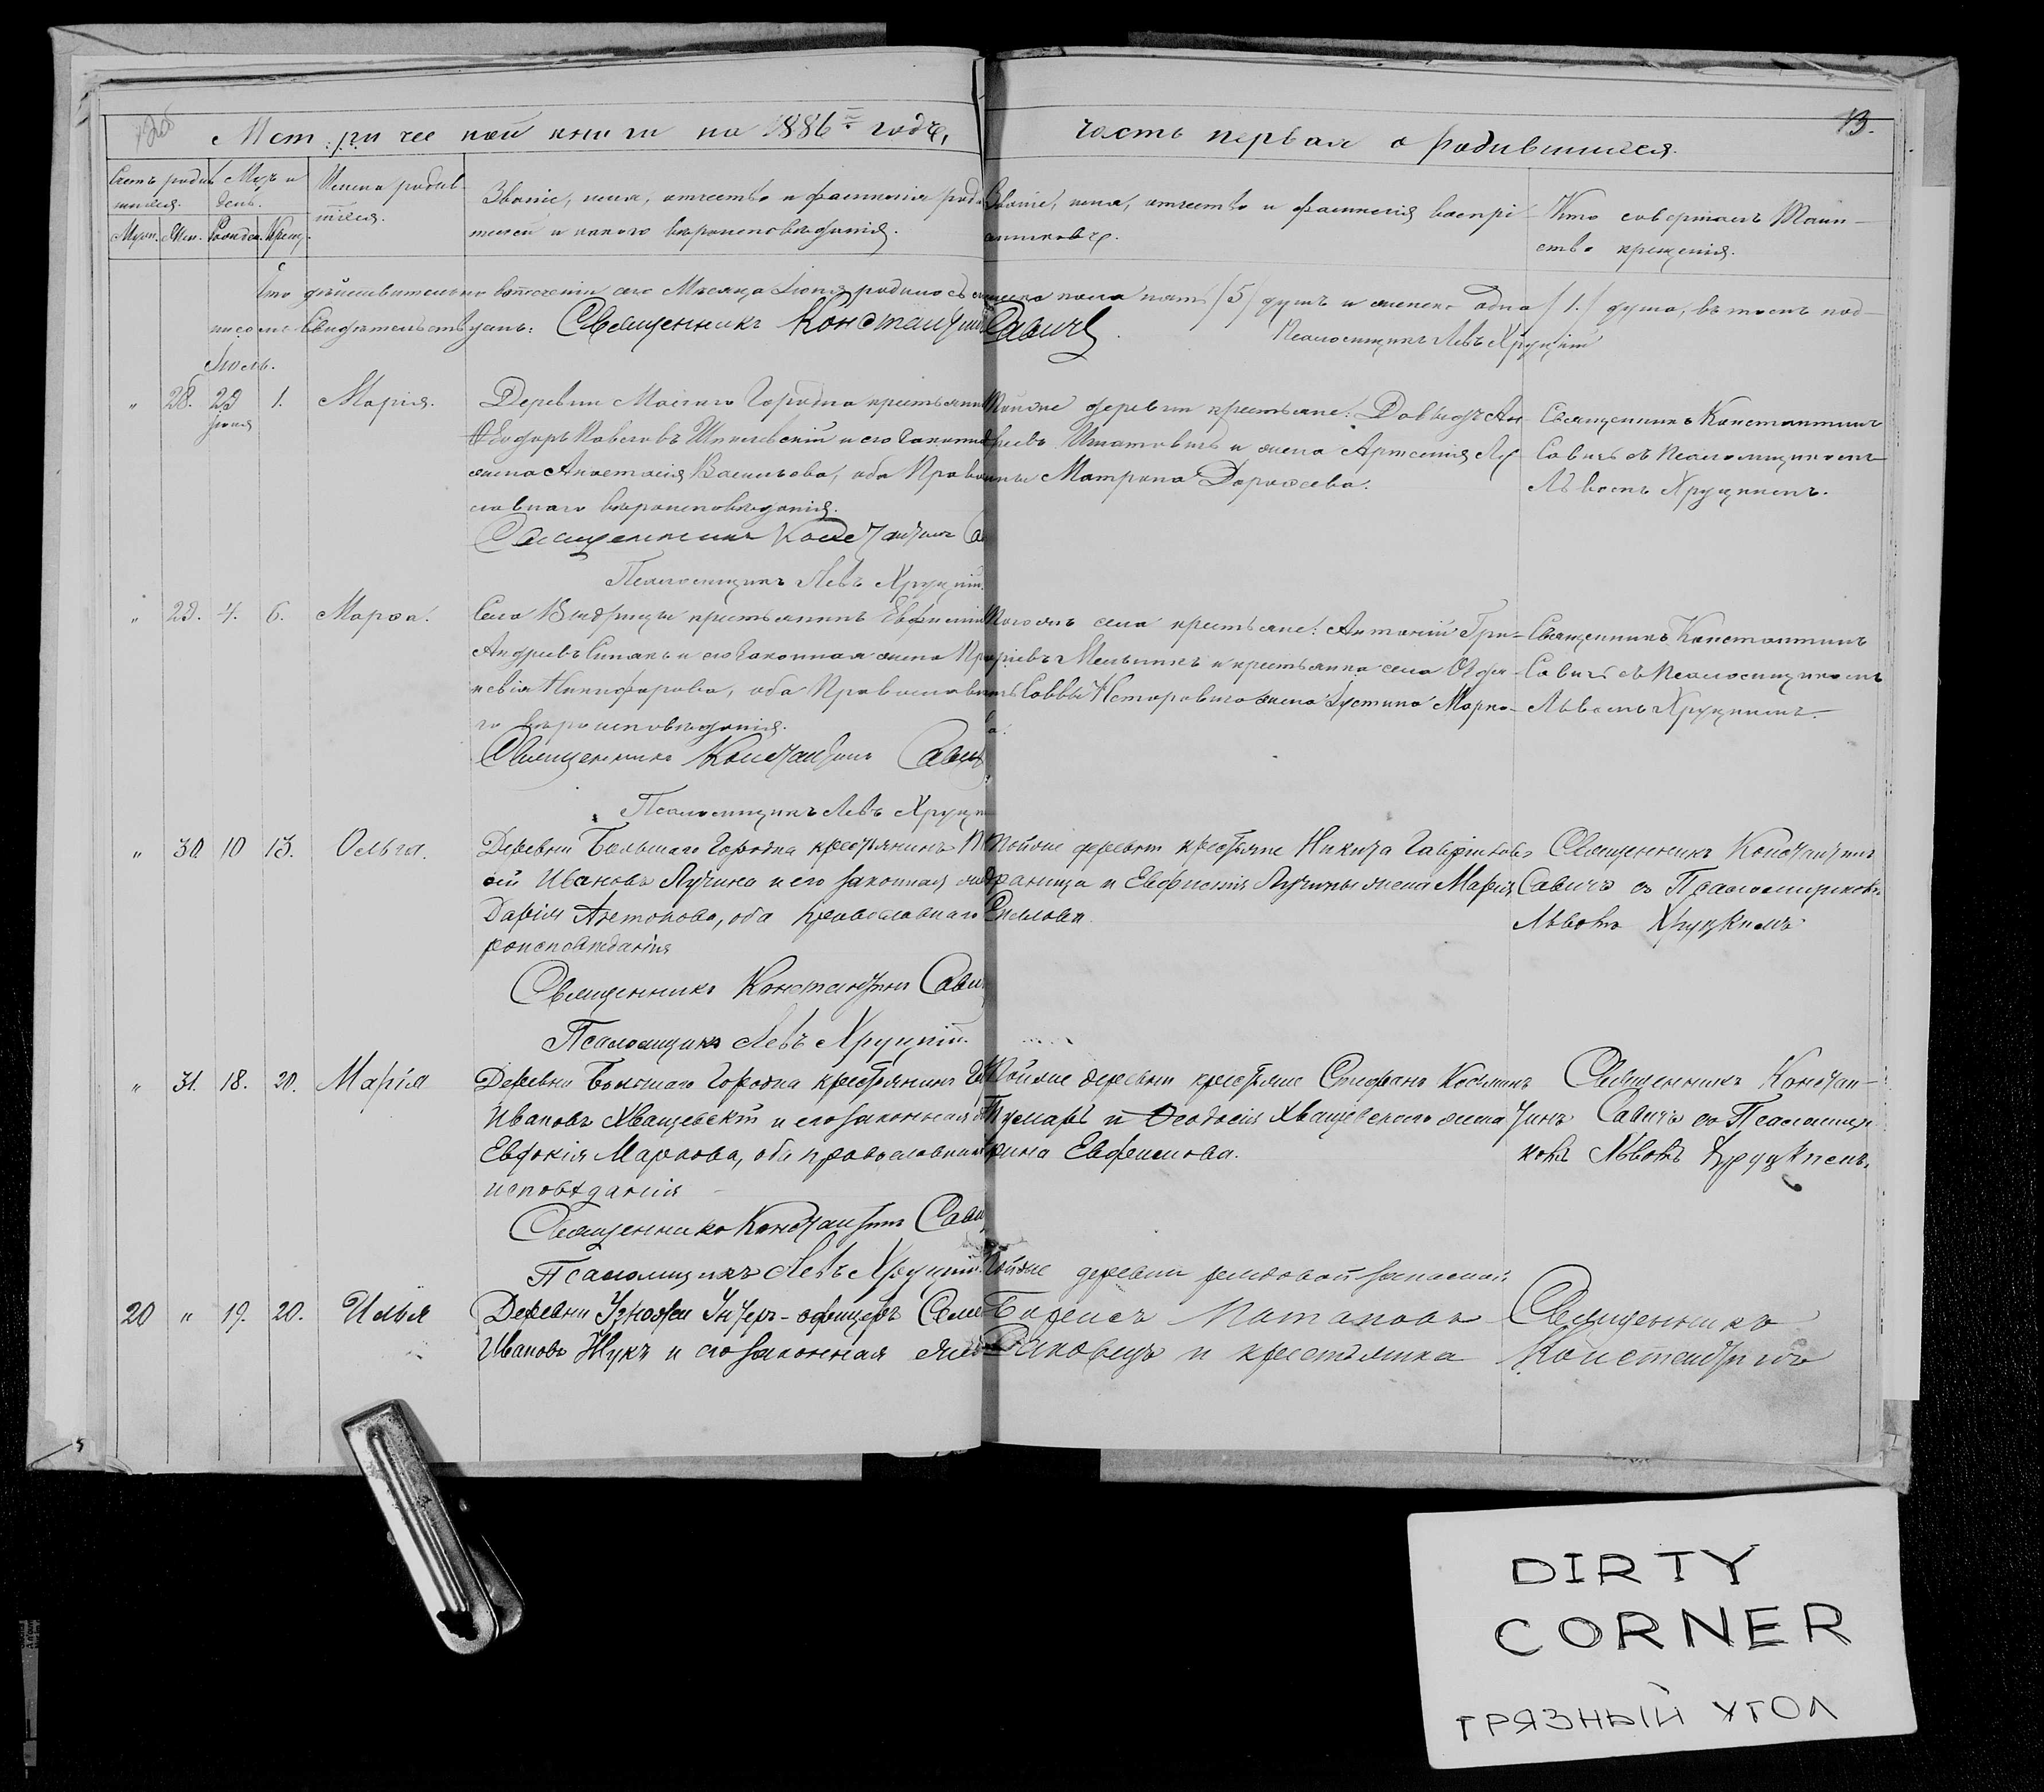 Метрической книги на 1886й годъ, часть первая о родившихся.
13.
Счетъ родив- Мѣс. и Имена родив-
шихся. день. шихся.
Муж. Жен. Рожден. Крещ.
Званіе, имя, отчество и фамилія роди-
телей и какого вѣроисповѣданія.
Званіе, имя, отчество и фамилія воспрі-
емниковъ.
Кто совершалъ Таин-
ство крещенія.
Что дѣйствительно въ теченіи сего мѣсяца Іюня родилось мужеска пола пять (5) душъ и женска одна (1.) душа, въ томъ под-
писомъ свидѣтельствуемъ: Священникъ Константинъ Савичъ.
Псаломщикъ Левъ Хруцкій
Іюль.
" 28. 29 Іюня 1. Марія.
Деревни Малаго Городна крестьянинъ
Ѳеодоръ Павловъ и его законная
жена Анастасія Васильева, оба Право-
славнаго вѣроисповѣданія.
Священникъ Константинъ Са
Псаломщикъ Левъ Хруцкій.
Тойже деревни крестьяне: Давыдъ Ан-
дреевъ Игнатовичъ и жена Арсенія Лу-
чины Матрона Дороѳеева.
Священникъ Константинъ
Савичъ съ Псаломщикомъ
Львомъ Хруцкимъ.
" 29. 4. 6. Марѳа.
Села Выдрицы крестьянинъ Евфимій
Андреевъ и его законная жена Пра-
ксевія Никифорова, оба Православна-
го вѣроисповѣданія.
Священникъ Константинъ Савичъ
Псаломщикъ Левъ Хруцк
Тогожъ села крестьяне: Антоній Гри-
горіевъ Мельникъ и крестьянина села
Саввы Несторовича жена Іустина Марко-
ва.
Священникъ Константинъ
Савичъ съ Псаломщикомъ
Львомъ Хруцкимъ.
" 30 10 13. Ольга.
Деревни Большаго Городна крестьянинъ
Ивановъ Лучина и его законная жена
Дарія Антонова, оба православнаго
роисповѣданія
Священникъ Константинъ Сави
Псаломщикъ Левъ Хруцкій.
Тойже деревни крестьяне Никита Гавриловъ
и Евфимія Лучины жена Марія
Священникъ Константинъ
Савичъ съ Псаломщикомъ
Львомъ Хруцкимъ
" 31. 18. 20. Марія
Деревни Большаго Городна крестьянинъ
Ивановъ Хващевскій и его законная
Евфокія Маркова, оба православнаго
исповѣданія
Священникъ Константинъ Сави
Псаломщикъ Левъ Хруцкій.
Тойже деревни крестьяне Стефанъ Косминъ
и Ѳеодосія Хващевскаго жена
рина Евфимова.
Священникъ Констан-
тинъ Савичъ со Псаломщи-
комъ Львомъ Хруцкимъ.
20 " 19. 20. Илья
Деревни Узножи Унтеръ-офицеръ Семе
Ивановъ Жукъ и его законная жена
Тойже деревни рядовой запасной
Борисъ Потаповъ
и крестьянка
Священникъ
Константинъ
DIRTY
CORNER
ГРЯЗНЫЙ УГОЛ